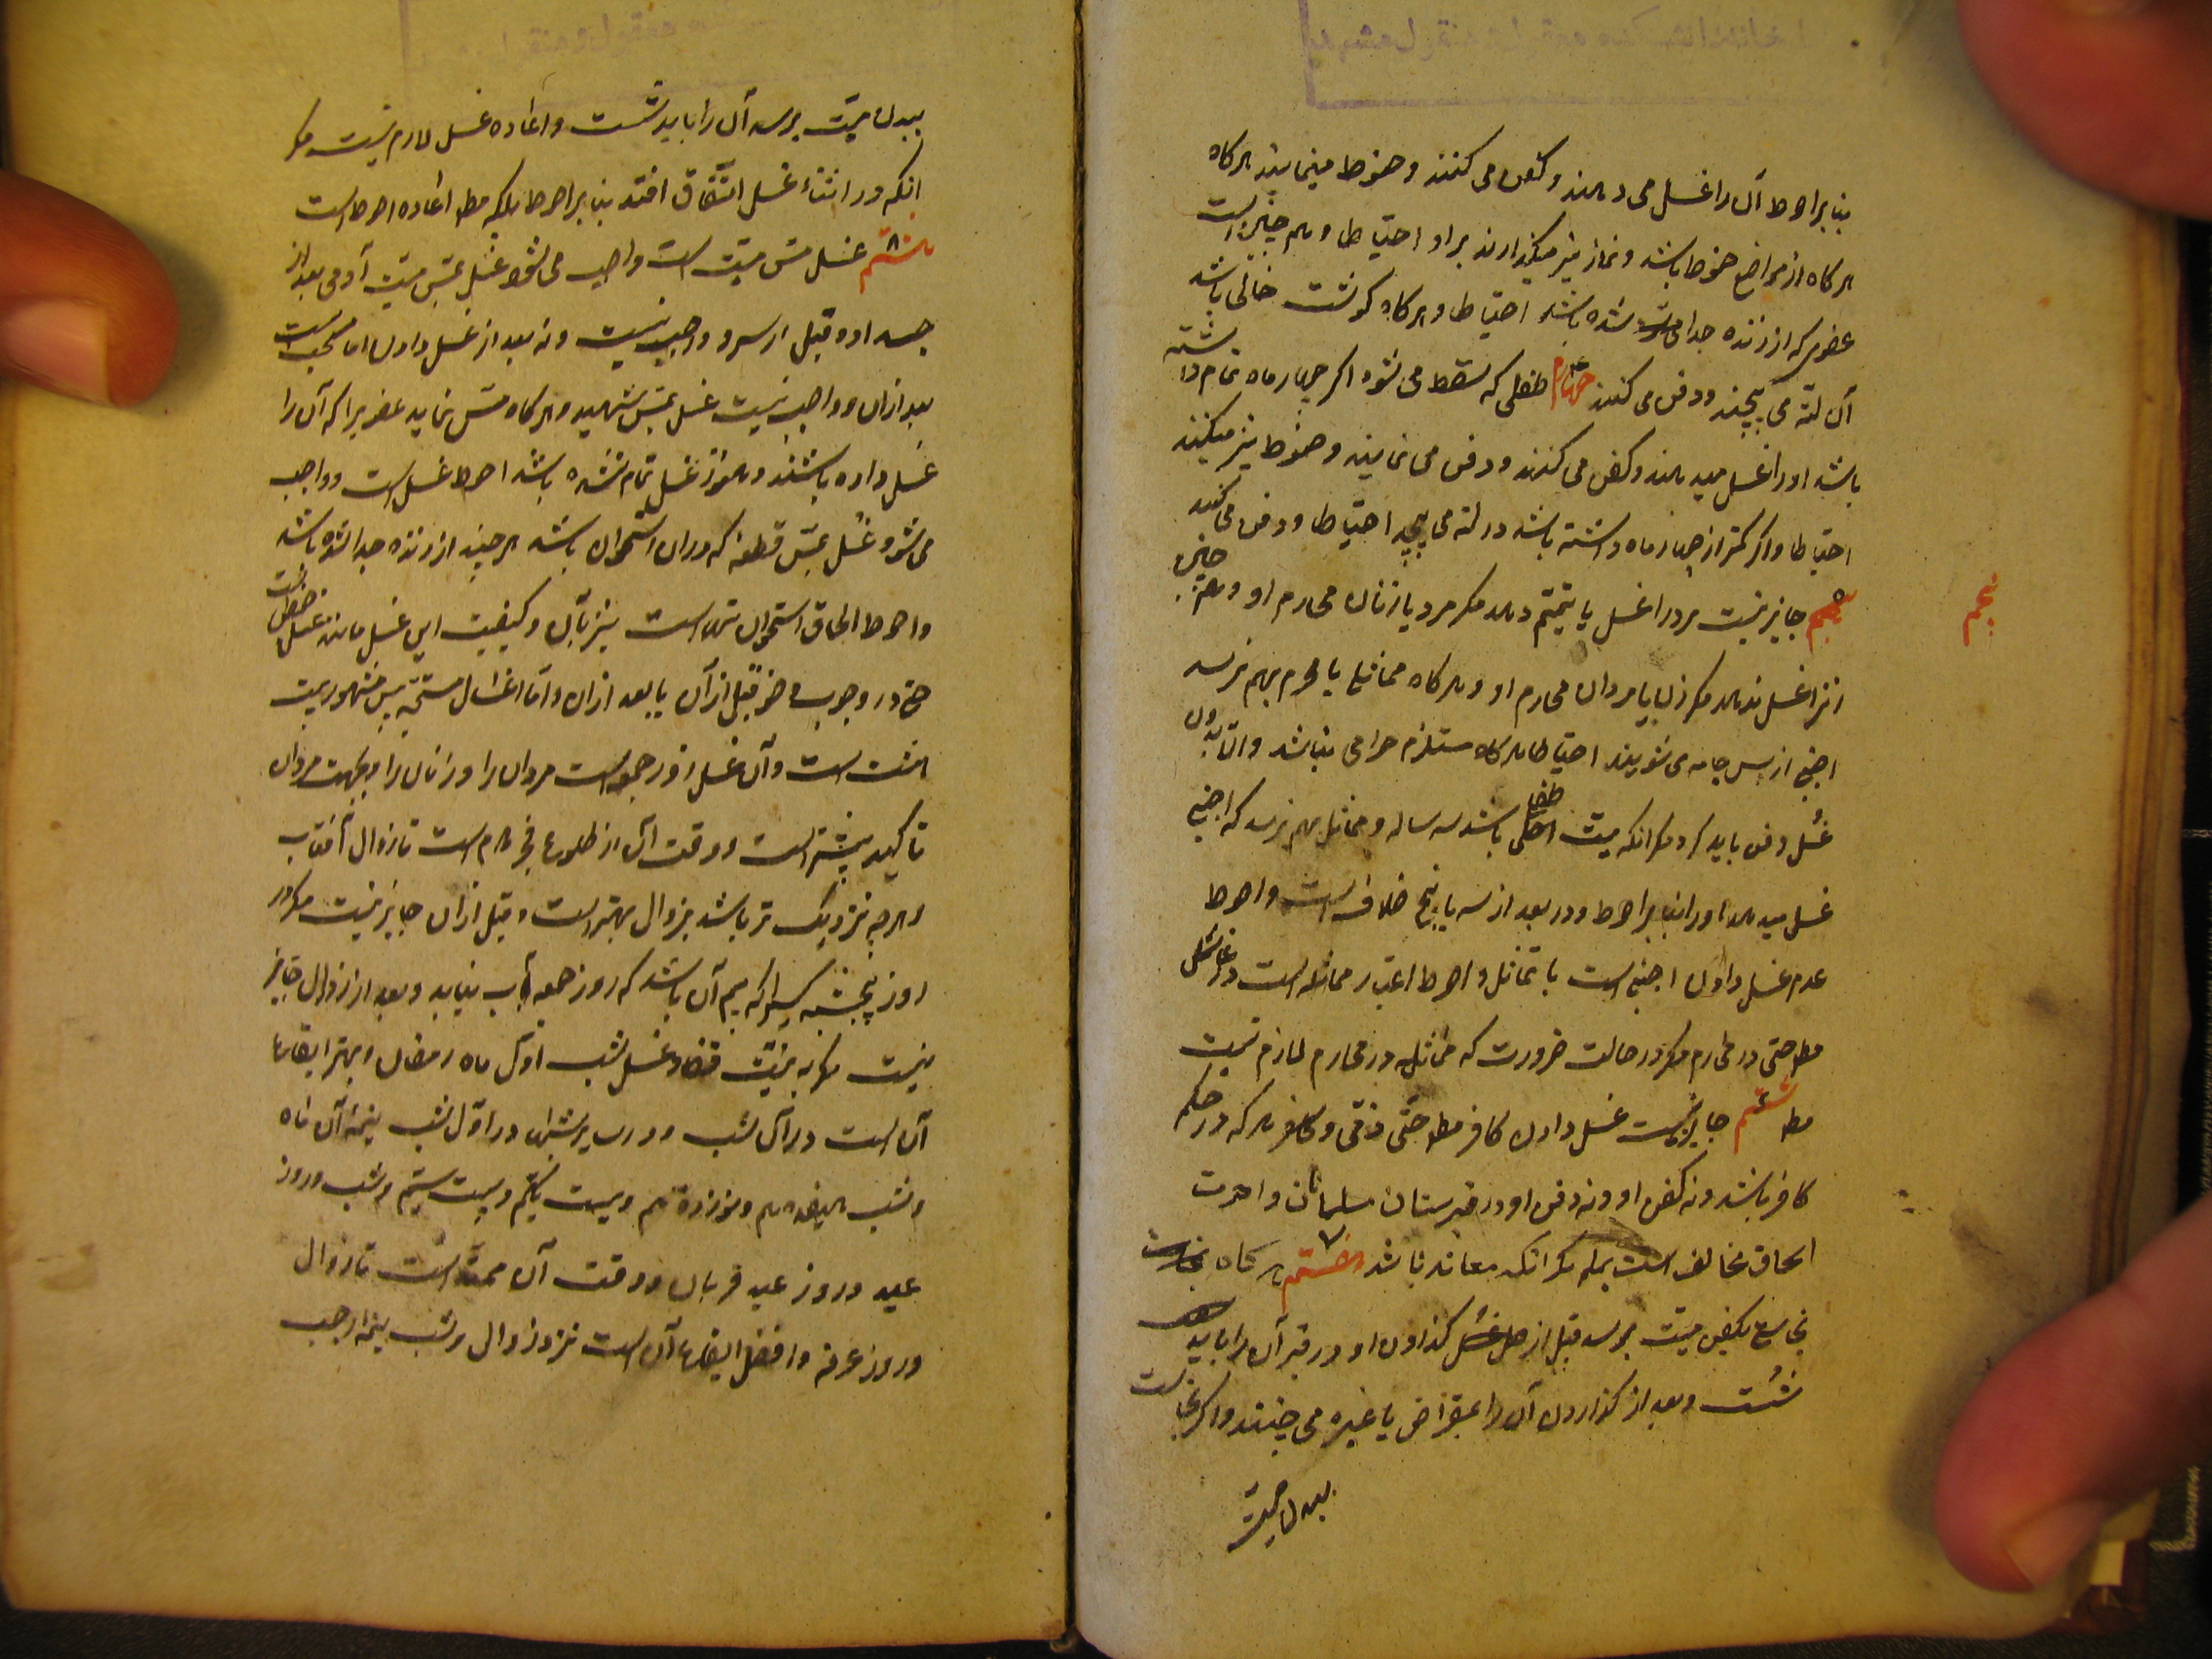 بنابر احوط آن را غسل می دهند و کفن می کنند و حنوط مینمایند هرگاه
هرگاه از مواضع حنوط باشد و نماز نیز میگذارند بر او احتیاطا و هم چنین است
عضوی که از زنده جدا شده باشد احتیاطا و هرگاه گوشت خالی باشد
آن لته می پیچند و دفن می کنند چهارم طفلی که سقط می شود اگر چهار ماه تمام داشته
باشد او را غسل میدهند و کفن می کنند و دفن می نمایند و حنوط نیز میکنند
احتیاطا و اگر کمتر از چهار ماه داشته باشد در لته می پیچد احتیاطا و دفن می کنند
پنجم جایز نیست مرد را غسل یا تیمم دهد مگر مرد یا زنان محارم او و همچنین
پنجم
زن را غسل ندهد مگر زن یا مردان محارم او و هرگاه مماثل یا محرم بهم نرسد
اجنبی از پس جامه می شویند احتیاطا هرگاه مستلزم حرامی نباشد و الا بدون
غسل دفن باید کرد مگر انکه میت طفل باشد سه ساله و مماثل بهم نرسد که اجنبی
غسل میدهد او را بنابر احوط و در بعد از سه یا پنج خلاف است و احوط
عدم غسل دادن اجنبی است با تماثل و احوط اعتبار مماثله است در غاسل
مط حتی در محارم مگر در حالت ضرورت که مماثله در محارم لازم نیست
مط ششم جایز نیست غسل دادن کافر مط حتی ذمی و کافر هرکه در حکم
کافر باشد و نه کفن او و نه دفن او در قبرستان مسلمانان و احوط
الحاق مخالف است بمله مگر انکه معاند باشد هفتم هرگاه نجاست
بکفن میت برسد قبل از گذاردن او در قبر آن را باید
شست و بعد از گذاردن آن را بمقراض یا غیره می چینند و اگر نجاست
ببدن میت
ببدن میت برسد آن را باید شست و اعاده غسل لازم نیست مگر
انکه در اثناء غسل اتفاق افتد بنابر احوط بلکه مط اعاده احوط است
هشتم غسل مس میت است واجب می شود غسل بمس میت آدمی بعد از
و قبل از سرد واجب نیست و نه بعد از غسل دادن اما مستحب است
بعد ازان و واجب نیست غسل بمس شهید و هرگاه مس نماید عضویرا که آن را
غسل داده باشند و هنوز غسل تمام نشده باشد احوط غسل است و واجب
می شود غسل بمس قطعه که دران استخوان باشد هر چند از زنده جدا شده باشد
و احوط الحاق استخوان تنها است نیز بآن و کیفیت این غسل مانند غسل حیض است
حتی در وجوب وضو قبل از آن یا بعد ازان و اما اغسال مستحبه پس مشهور بیست
هشت است و آن غسل روز جمعه است مردان را و زنان را و بجهت مردان
تاکید بیشتر است و وقت آن از طلوع فجر دوم است تا زوال آفتاب
و هر چه نزدیک تر باشد بزوال بهتر است و قبل ازان جایز نیست مگر در
روز پنجشنبه کسیرا که بیم آن باشد که روز جمعه آب نیابد و بعد از زوال جایز
نیست مگر به نیت قضا و غسل شب اول ماه رمضان و بهتر ایقاع
آن است در آن شب و در سایر شبها در اول شب نیمه آن ماه
و شب هیفدهم و نوزدهم و بیست یکم و بیست سیم و شب و روز
عید و روز عید قربان و وقت آن ممتد است تا زوال
و روز عرفه و افضل ایقاع آن است نزد زوال و شب نیمه رجب